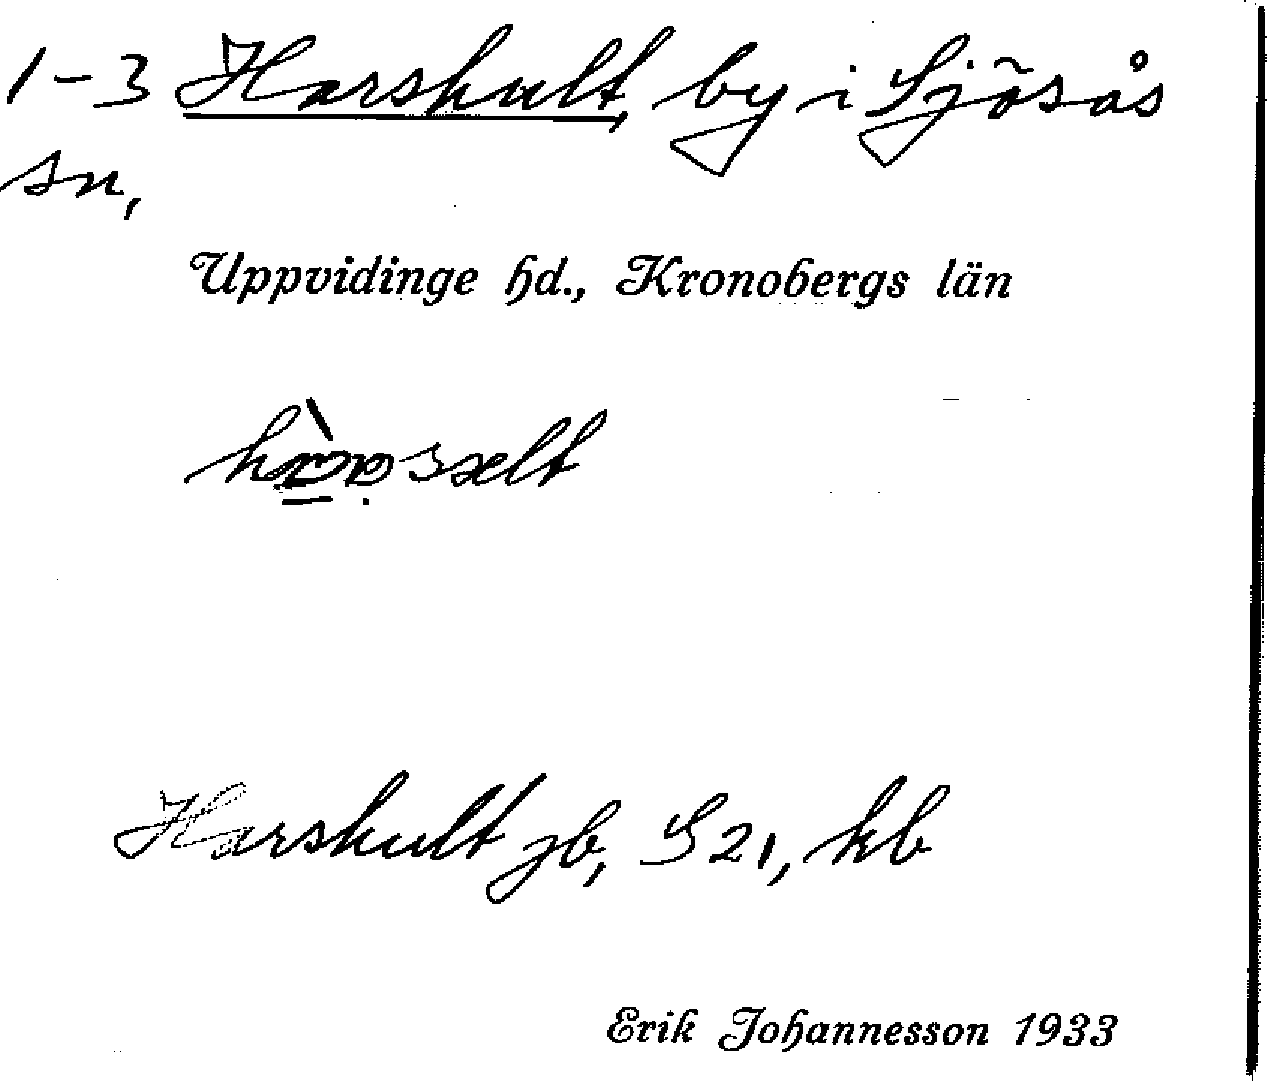 1-3 Harshult, by i Sjösås
sn,
Uppvidinge hd., Kronobergs län
Harshult jb, S21, kb
Erik Johannesson 1933